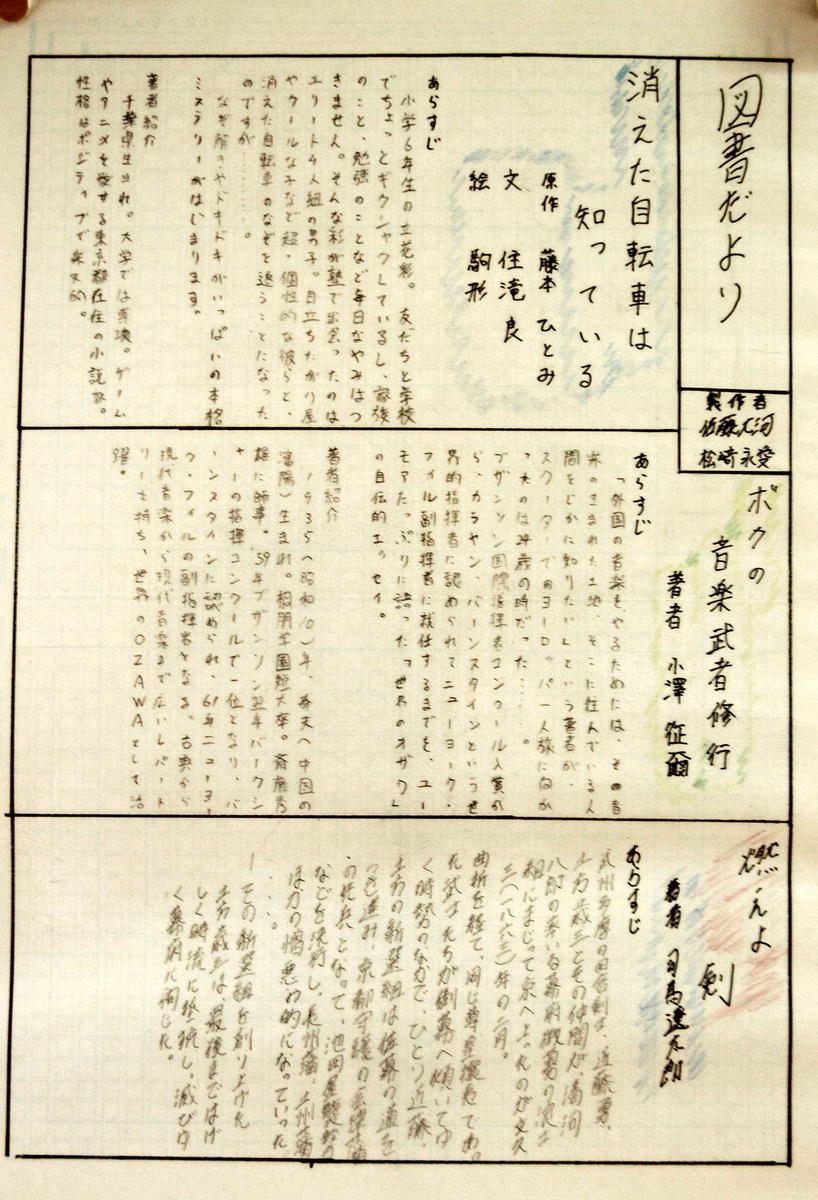 図書だより
製作者
佐藤大河
松崎永愛
消えた自転車は
知っている
原作 藤本 ひとみ
文 住滝 良
絵 駒形
あらすじ
小学6年生の立花彩。友だちと学校
でちょっとギクシャクしているし、家族
のこと、勉強のことなど毎日なやみはつ
きません。そんな彩が塾で出会ったのは
エリート4人組の男子。目立ちたがり屋
やクールな子など超・個性的な彼らと、
消えた自転車のなぞを追うことになった
のですが………。
なぞ解きやドキドキがいっぱいの本格
ミステリーがはじまります。
著者紹介
千葉県生まれ。大学では専攻。ゲーム
やアニメを愛する東京都在住の小説家。
性格はポジティブで楽天的。
ボクの
音楽武者修行
著者 小澤 征爾
あらすじ
「外国の音楽をやるためには、その音
楽の生まれた土地、そこに住んでいる人
間をじかに知りたい」という著者が、
スクーターでヨーロッパ一人旅に向か
ったのは24歳の時だった……。
ブザンソン国際指揮者コンクール入賞か
ら、カラヤン、バーンスタインという世
界的指揮者に認められてニューヨーク・
フィル副指揮者に就任するまでを、ユー
モアたっぷりに語った「世界のオザワ」
の自伝的エッセイ。
著者紹介
1935(昭和10)年、奉天(中国の
瀋陽)生まれ。桐朋学園短大卒。斎藤秀
雄に師事。59年ブザンソン、翌年バークシ
ャーの指揮コンクールで一位となり、バ
ーンスタインに認められ、61年ニューヨー
ク・フィルの副指揮者となる。古典から
現代音楽まで広いレパート
リーを持ち、世界のOZAWAとして活
躍。
燃えよ
剣
著者 司馬遼太郎
あらすじ
武州多摩の田舎剣士、近藤勇、
土方歳三とその仲間が、清河
八郎の率いる幕府徴募の浪士
組にまじって京へ上ったのが文久
三(一八六三)年の二月。
曲折を経て、同じ尊皇攘夷であっ
た志士たちが倒幕へ傾いてゆ
く時勢のなかで、ひとり近藤、
土方の新選組は佐幕の道を
つき進み、京都守護の会津藩
の先兵となって、池田屋襲撃
などを決行し、長州藩、土州藩
ほかの憎悪の的になっていった
……。
―この新選組を創り上げた
土方歳三は、最後まではげ
しく時流に抵抗し、滅びゆ
く幕府に殉じた。